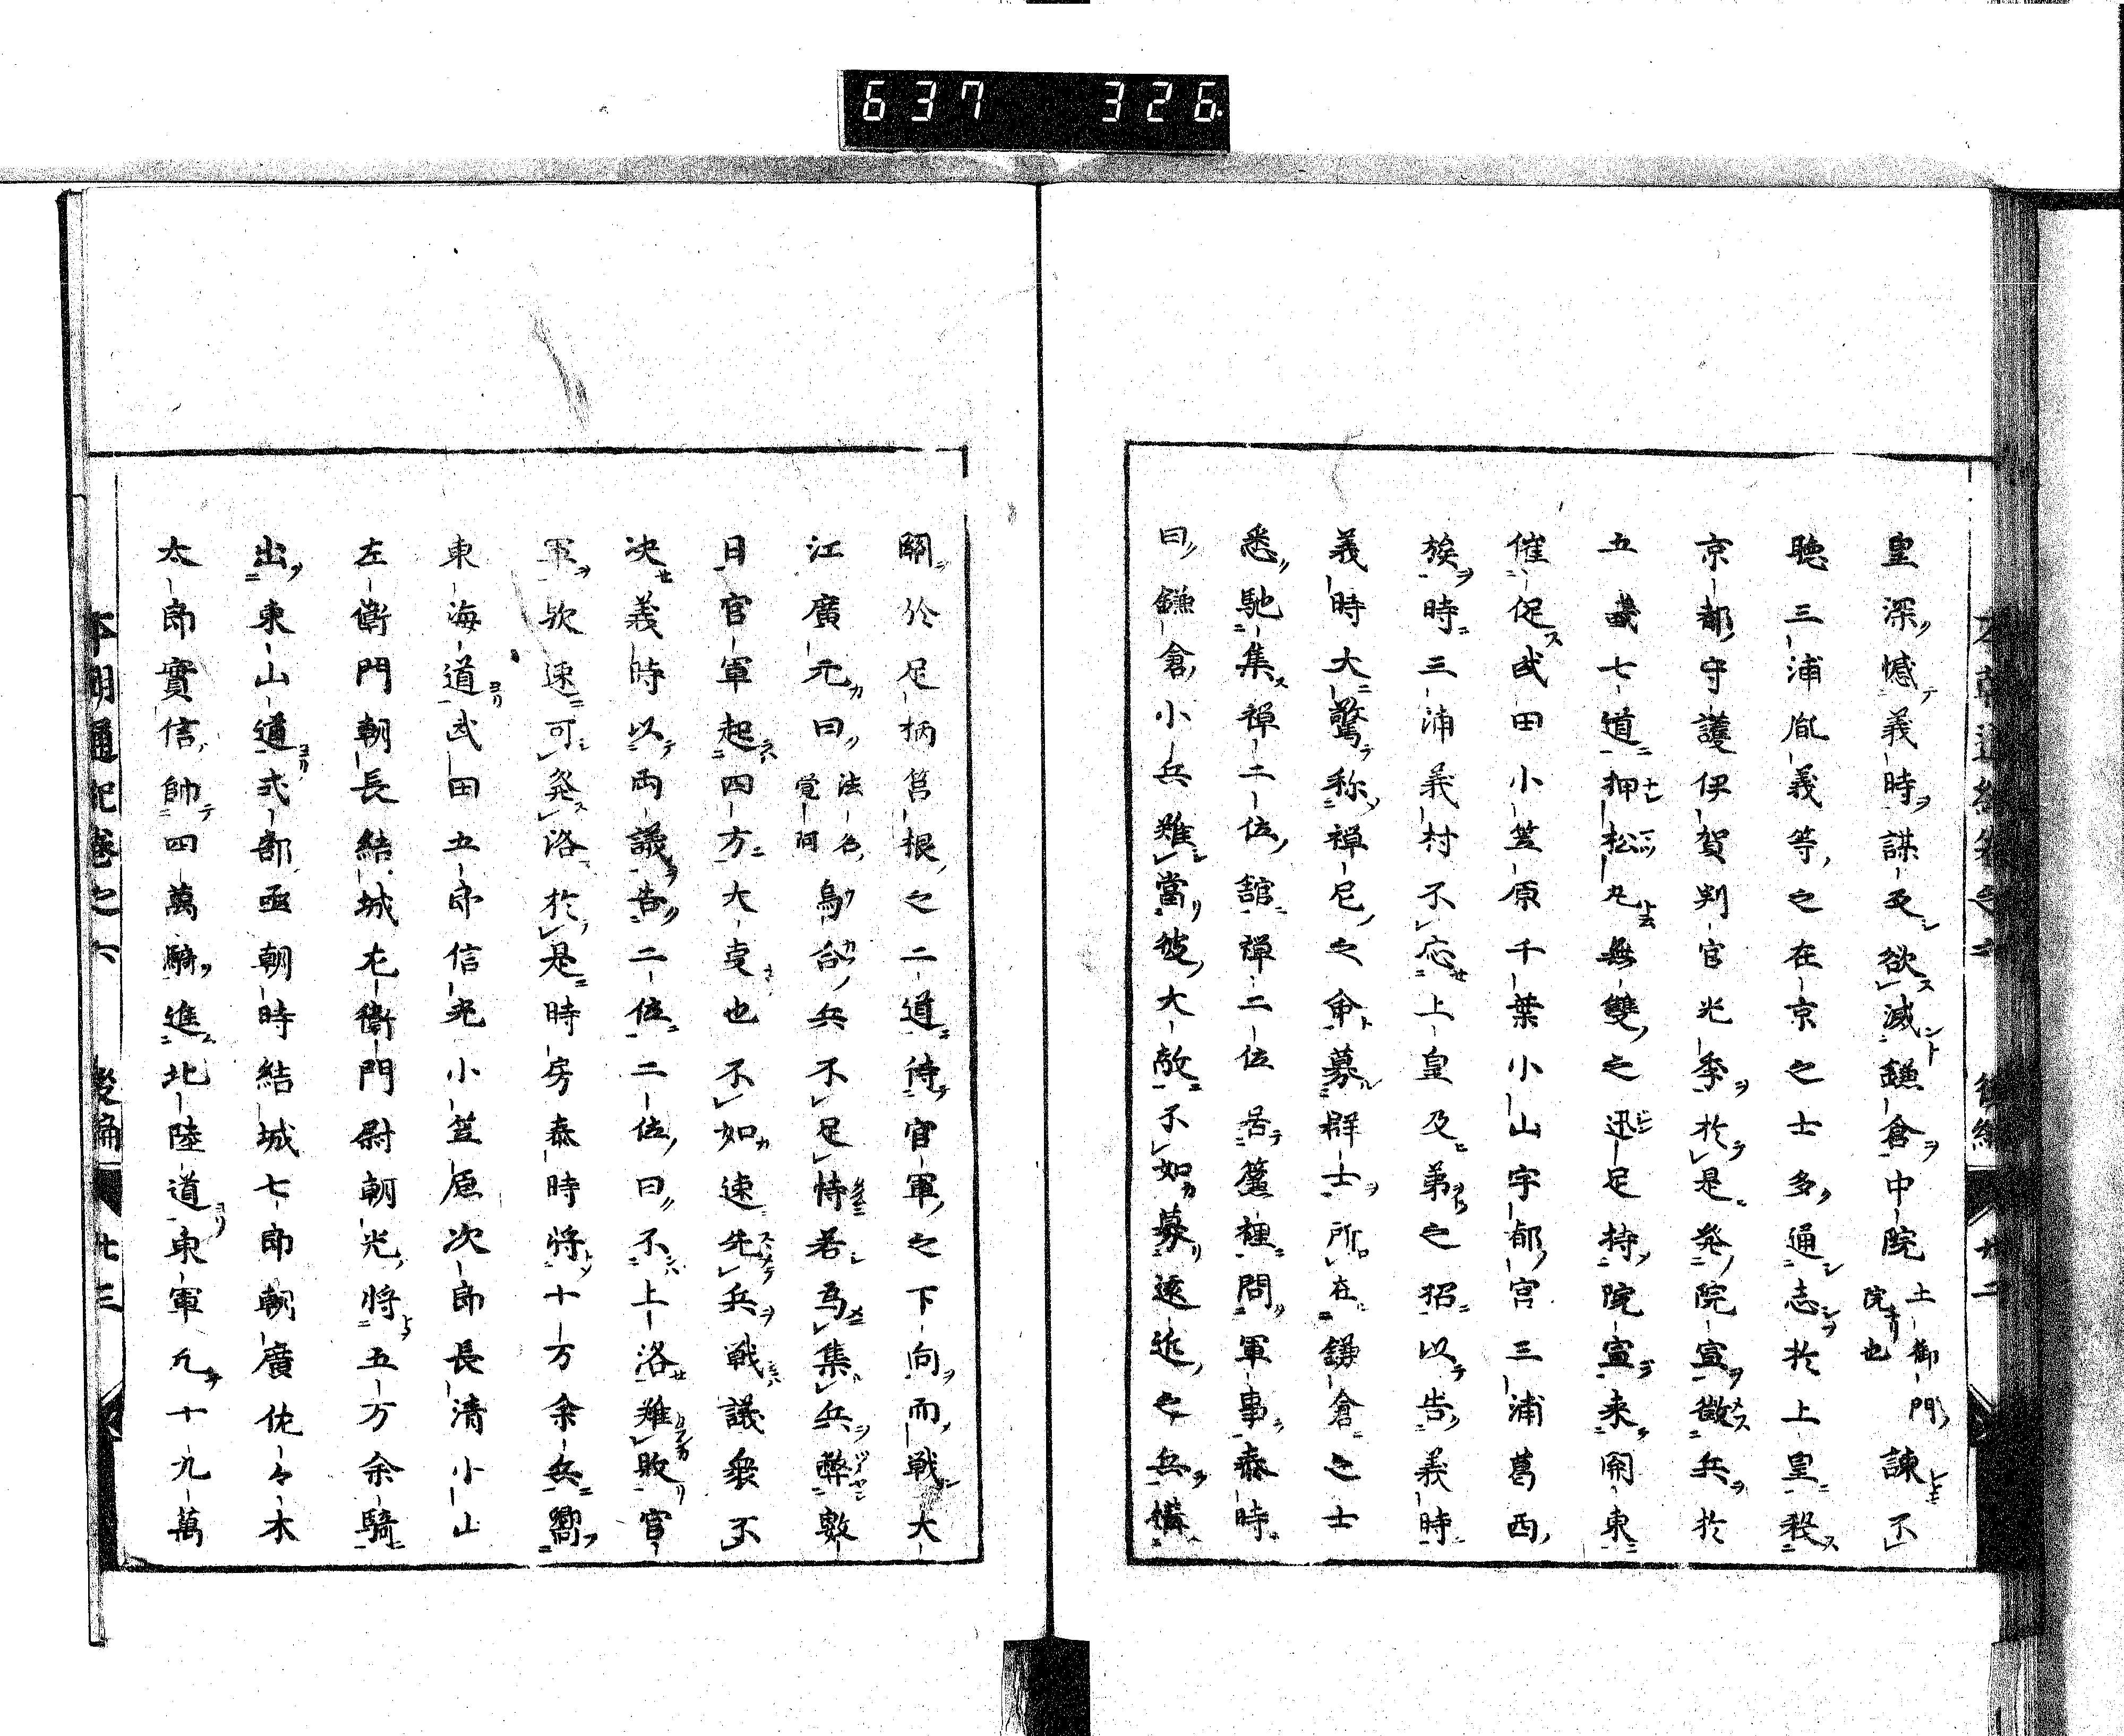 637 326
皇深憾義時謀叓欲滅鎌倉中院土御門院也諫不
聴三浦胤義等之在京之士多通志於上皇殺
京都守護伊賀判官光季於是発院宣徴兵於
五畿七道押松丸無雙之迅足持院宣来関東
催促武田小笠原千葉小山宇都宮三浦葛西
族時三浦義村不応上皇及弟之招以告義時
義時大驚称禅尼之命募群士所在鎌倉之士
悉馳集禅二位舘禅二位居簾裡問軍事泰時
曰鎌倉小兵難當彼大敵不如募遠近之兵構
關於足柄筥根之二道待官軍之下向而戦大
江廣元曰法名覚阿烏合兵不足恃若為集兵弊數
日官軍起四方大叓也不如速先兵戦議衆不
决義時以両議告二位二位曰不上洛難敗官
軍欤速可発洛於是時房泰時将十万余兵嚮
東海道武田五郎信光小笠原次郎長清小山
左衛門朝長結城左衛門尉朝光将五万余騎
出東山道式部丞朝時結城七郎朝廣佐々木
太郎實信帥四萬騎進北陸道東軍凢十九萬
本朝通紀巻之六 後編 廿三